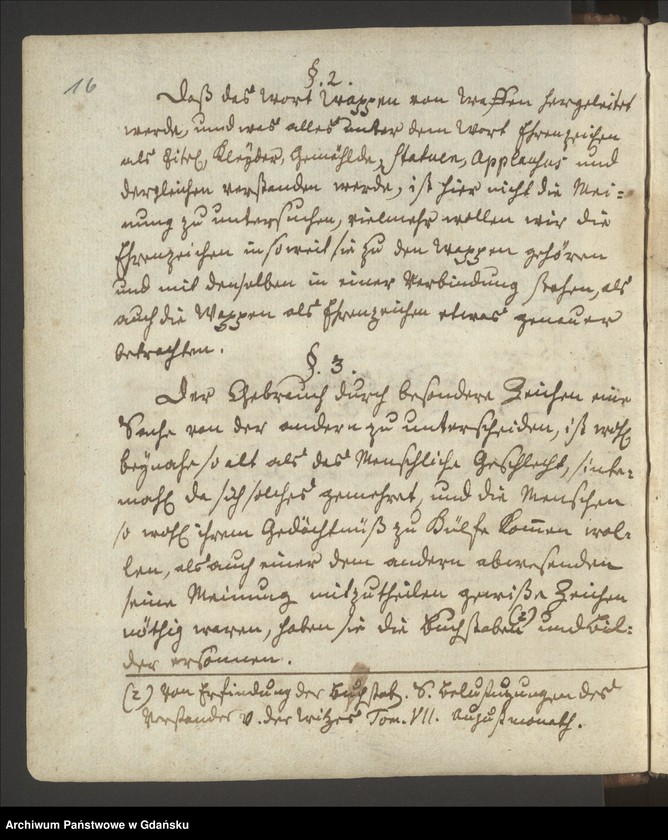 16
§. 2.
Daß das Wort Wappen von Waffen hergeleitet
werde, und was alles unter dem Wort Ehrenzeichen
als Titel, Kleyder, Gemählde, Statuen, Applausus und
dergleichen verstanden werde, ist hier nicht die Mei=
nung zu untersuchen, vielmehr wollen wir die
Ehrenzeichen in soweit sie zu den Wappen gehören
und mit denselben in einer Verbindung stehen, als
auch die Wappen als Ehrenzeichen etwas genauer
betrachten.
§. 3.
Der Gebrauch durch besondere Zeichen eine
Sache von der andern zu unterscheiden, ist wohl
beynahe so alt als das Menschliche Geschlecht, sinte=
mahl da sich solches gemehret, und die Menschen
so wohl ihrem Gedächtnüß zu Hülfe kom̄en wol=
len, als auch einer dem andern abwesenden
seine Meinung mitzutheilen gewiße Zeichen
nöthig waren, haben sie die Buchstaben (z) und Bil=
der ersonnen.
(z) Von Erfindung der Buchstab. S. Belustigungen des
Verstandes u. des Witzes Tom. VII. Augustmonath.
Archiwum Państwowe w Gdańsku